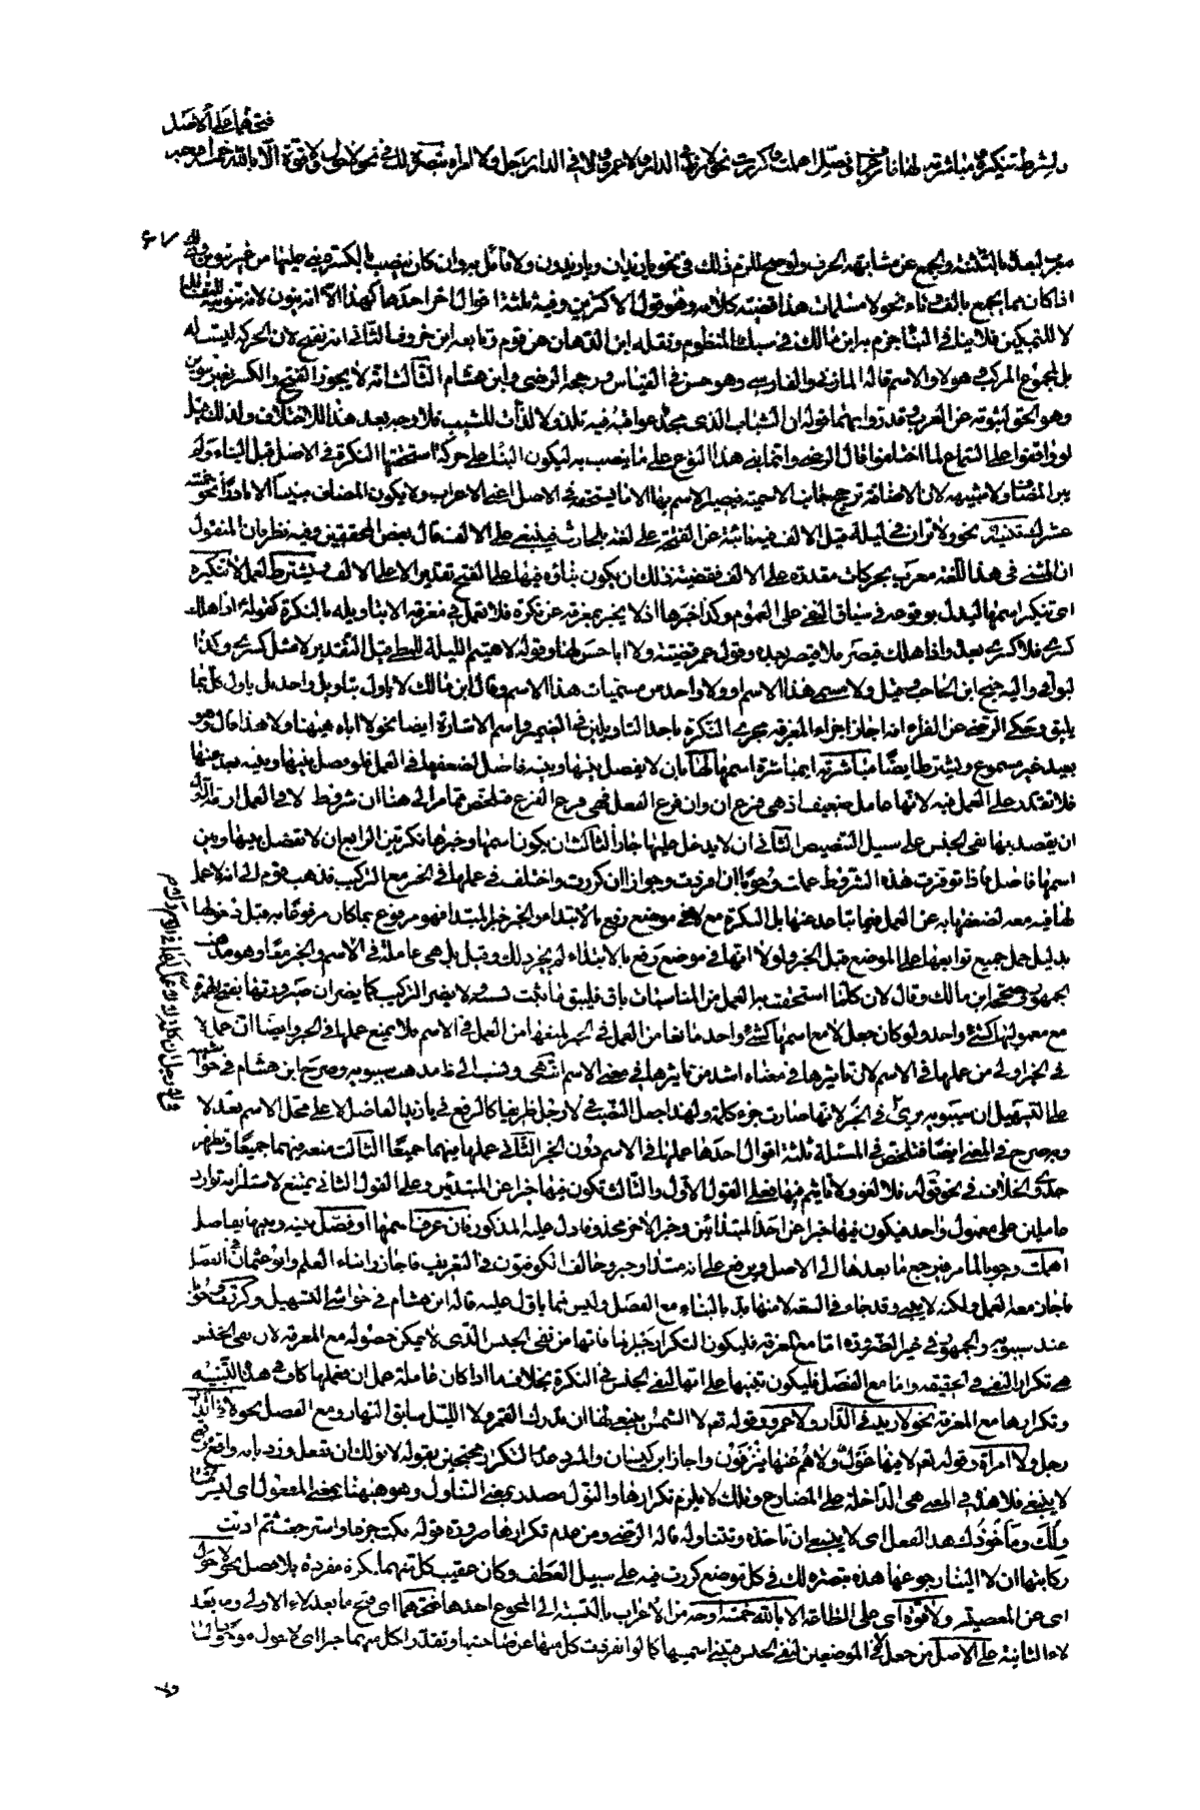 فتحهما على الاصل
ويشترط تنكيره ومباشرته لها فان عرف او فصل اهملت وكررت نحو لا زيد في الدار ولا عمرو ولا في الدار رجل ولا امرأة ولك في نحو لا حول ولا قوة الا بالله خمسة اوجه
٦٧
معنى ابعد بالتثنية والجمع عن مشابهة الحرف ولو صح للزم ذلك في نحو يا زيدان ويا زيدون ولا قائل به وان كان ينصب بالكسرة بني عليها من غير تنوين
اذا كان مما يجمع بالف وتاء نحو لا مسلمات هذا قضية كلامه وهو قول الاكثرين وفيه ثلثة اقوال اخر احدها كهذا الا انه ينون لان تنوينه للمقابلة
لا للتمكين فلا ينافي البنا جزم به ابن مالك في سبك المنظوم ونقله ابن الدهان عن قوم وتابعه ابن خروف الثاني انه يفتح لان الحركة ليست له
بل لمجموع المركب وهو لا والاسم قاله المازني والفارسي وهو حسن في القياس ورجحه الرضي وابن هشام الثالث انه يجوز الفتح والكسر بغير تنوين
وهو الحق لثبوته عن العرب وقد روي بهما قوله ان الشباب الذي مجد عواقبه فيه نلذ ولا لذات للشيب فلا وجه بعد هذا للاختلاف ولذلك قيل
لو وقفوا على السماع لما اختلفوا قال الرضي وانما بني هذا النوع على ما ينصب به ليكون البنا على حركة استحقتها النكرة في الاصل قبل البناء ولم
يبن المضاف ولا مشبهه لان الاضافة ترجح جانب الاسمية فيصير الاسم بها الى ما يستحقه في الاصل اعني الاعراب ولا يكون المضاف مبنيا الا نادرا نحو خمسة
عشرك تنبيه نحو ولا تران في ليلة قبل الالف فيه نائبة عن الفتحة على لغة بلحارث فيبنى على الالف قال بعض المحققين وفيه نظر فان المنقول
ان المثنى في هذه اللغة معرب بحركات مقدرة على الالف فقضية ذلك ان يكون بناؤه فيها على الفتح تقديرا لا على الالف ويشترط لعمل لا تنكيره
اي تنكير اسمها ليدل بوقوعه في سياق النفي على العموم وكذا خبرها اذ لا يخبر بمعرفة عن نكرة فلا تعمل في معرفة الا بتاويله بالنكرة كقوله اذا هلك
كسرى فلا كسرى بعده واذا هلك قيصر فلا قيصر بعده وقول عمر قضية ولا ابا حسن لها وقوله لا هيثم الليلة للمطي قيل التقدير لا مثل كسرى وكذا
البواقي واليه جنح ابن الحاجب وقيل ولا مسمى هذا الاسم او ولا واحد من مسميات هذا الاسم وقال ابن مالك لا ياول بتاويل واحد بل ياول كل بما
يليق به وحكى الرضي عن الفراء انه اجاز اجراء المعرفة مجرى النكرة باحد التاويلين في الضمير واسم الاشارة ايضا نحو لا اياه ههنا ولا هذا قال وهو
بعيد غير مسموع ويشترط ايضا مباشرته اي مباشرة اسمها لها بان لا يفصل بينها وبينه فاصل لضعفها في العمل فلو فصل بينها وبينه بعد عنها
فلا تقتدر على العمل فيه لانها عامل ضعيف اذ هي فرع ان وان فرع الفعل فهي فرع الفرع فتلخص مما مر الى هنا ان شروط لا في العمل اربعة الاول
ان يقصد بها نفي الجنس على سبيل التنصيص الثاني ان لا يدخل عليها جار الثالث ان يكون اسمها وخبرها نكرتين الرابع ان لا تفصل بينها وبين
اسمها فاصل فاذا توفرت هذه الشروط عملت وجوبا ان افردت وجوازا ان كررت واختلف في عملها في الخبر مع التركيب فذهب قوم الى انه لا عمل
لها فيه معه لضعفها به عن العمل فيما تباعد عنها بل النكرة مع لا في موضع رفع بالابتدا والخبر خبر المبتدا فهو مرفوع بما كان مرفوعا به قبل دخولها
بدليل حمل جميع توابعها على الموضع قبل الخبر ولولا انها في موضع رفع بالابتداء لم يجز ذلك وقيل بل هي عاملة في الاسم والخبر معا وهو مذهب
الجمهور وصححه ابن مالك وقال لان كلما استحقت به العمل من المناسبات باق فليبق ما ثبت بسببه ولا يضر التركيب كما يضر ان صيرورتها بفتح الهمزة
مع معموليها كشئ واحد ولو كان جعل لا مع اسمها كشئ واحد مانعا من العمل في الخبر لمنعها من العمل في الاسم فلا يمنع عملها في الخبر وايضا ان عمل لا
في الخبر اولى من عملها في الاسم لان تاثيرها في معناه اشد من تاثيرها في معنى الاسم انتهى ونسب الى ظاهر مذهب سيبويه وصرح ابن هشام في حواشيه
على التسهيل ان سيبويه يرى في الخبر لانها صارت جزء كلمة ولهذا جعل النصب في لا رجل ظريفا كالرفع في يا زيد الفاضل لا على محل الاسم بعد لا
وبه صرح في المغني ايضا فتلخص في المسئلة ثلثة اقوال احدها عملها في الاسم دون الخبر الثاني عملها فيهما جميعا الثالث منعه فيهما جميعا وتظهر
جدوى الخلاف في نحو قوله فلا لغو ولا تاثيم فيها فعلى القول الاول والثالث تكون فيها خبرا عن المبتدئين وعلى القول الثاني يمتنع لاستلزامه توارد
عاملين على معمول واحد فيكون فيها خبرا عن احد المبتدائين وخبر الآخر محذوفا دل عليه المذكور فان عرف اسمها او فصل بينه وبينها بفاصل
اهملت وجوبا لما مر فيرجع ما بعدها الى الاصل ويرفع على انه مبتدا وخبر وخالف الكوفيون في التعريف فاجازوا بناء العلم وابو عثمان في الفصل
فاجاز معه العمل ولكنه لا يبنى وقد جاء في السعة لا منها بد بالبناء مع الفصل وليس مما ياول عليه قاله ابن هشام في حواشي التسهيل وكررت وجوبا
عند سيبويه والجمهور في غير الضرورة اما مع المعرفة فليكون التكرار جبرا لما فاتها من نفي الجنس الذي لا يمكن حصوله مع المعرفة لان نفي الجنس
هو تكرار النفي في الحقيقة واما مع الفصل فليكون تنبيها على انها لنفي الجنس في النكرة بخلاف ما اذا كان عاملة عمل ان فعملها كاف في هذا التنبيه
وتكرارها مع المعرفة نحو لا زيد في الدار ولا عمرو وقوله تعم لا الشمس ينبغي لها ان تدرك القمر ولا الليل سابق النهار ومع الفصل نحو لا في الدار
رجل ولا امراة وقوله تعم لا فيها غول ولا هم عنها ينزفون واجاز ابن كيسان والمبرد عدم التكرار محتجين بقوله لا نولك ان تفعل ورد بانه واقع موقع
لا ينبغي فلا هذه في المعنى هي الداخلة على المضارع وتلك لا يلزم تكرارها والنول مصدر بمعنى التناول وهو ههنا بمعنى المفعول اي ليس متناولك
ولك وماخوذك هذا الفعل اي لا ينبغي ان تاخذه وتتناوله قاله الرضي ومن عدم تكرارها ضرورة قوله بكت جزعا واسترجعت ثم اذنت
ركائبها ان لا الينا رجوعها هذه تبصرة لك في كل موضع كررت فيه على سبيل العطف وكان عقيب كل منهما نكرة مفردة بلا فصل نحو لا حول
اي عن المعصية ولا قوة اي على الطاعة الا بالله خمسة اوجه من الاعراب بالنسبة الى المجموع احدها فتحهما اي فتح ما بعد لاء الاولى وما بعد
لاء الثانية على الاصل من جعل لا في الموضعين لنفي الجنس فتبني اسميها كما لو انفردت كل منها عن صاحبتها وتقدر لكل منهما خبرا اي لا حول موجود لنا
ولا